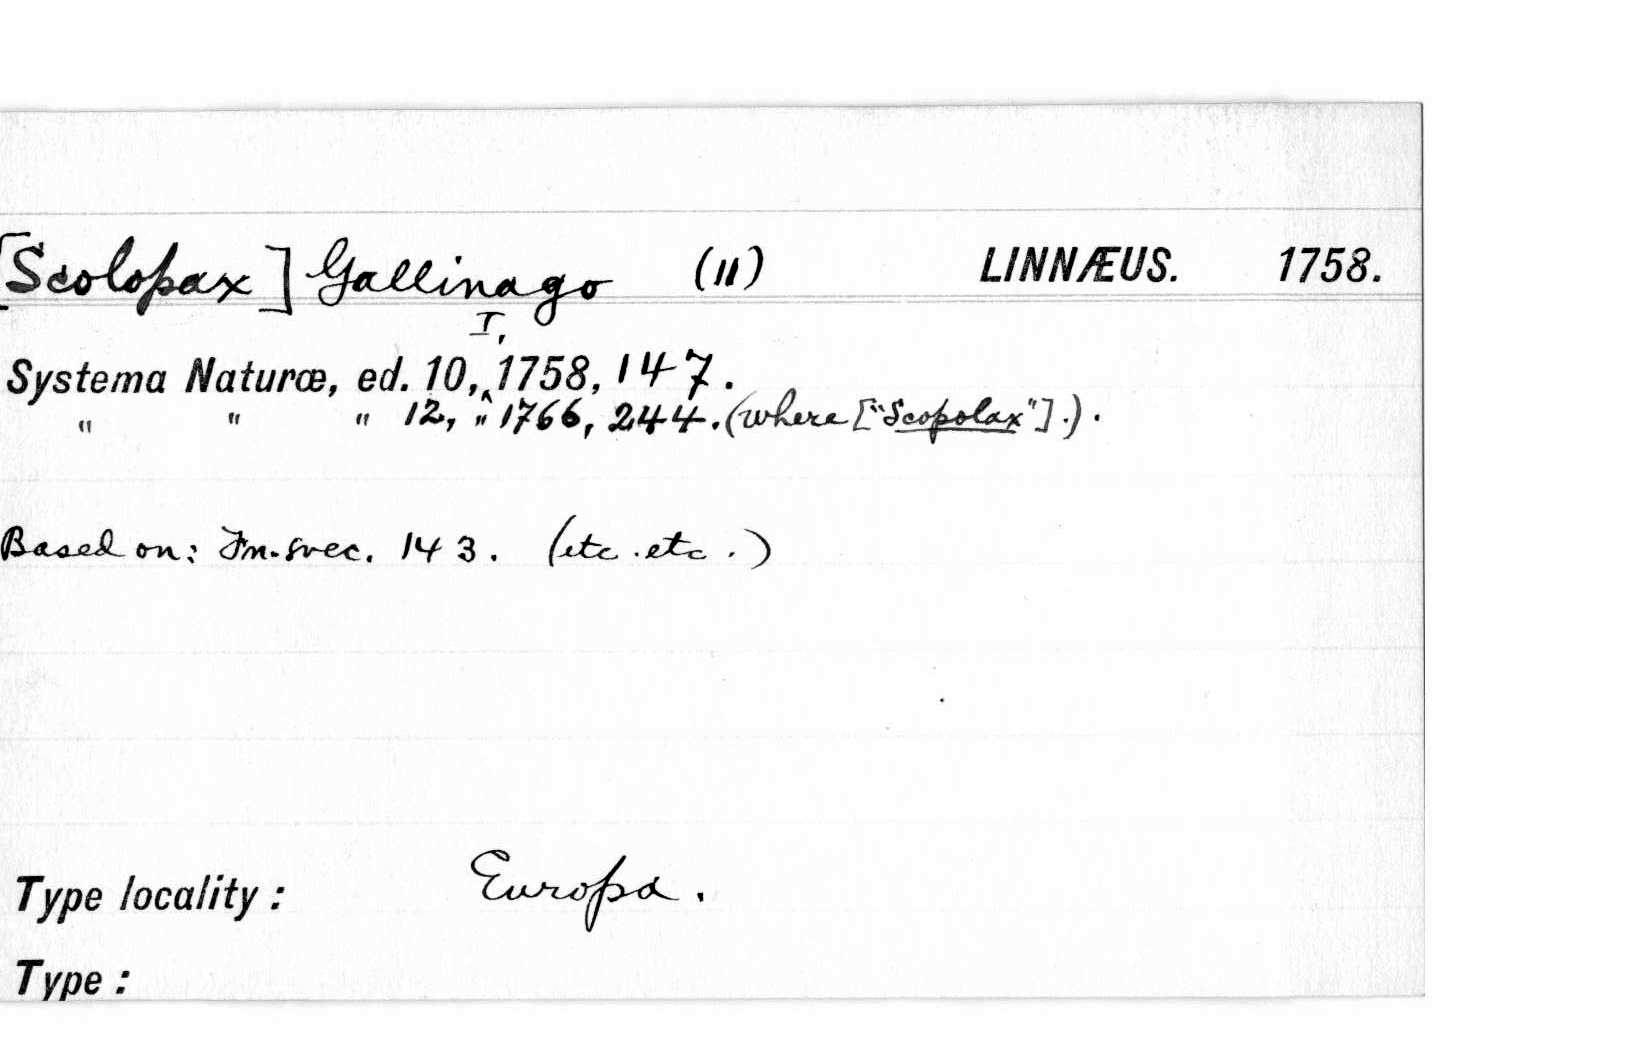 [Scolopax] Gallinago (11) LINNÆUS. 1758.
I,
Systema Naturæ, ed. 10,^ 1758, 147.
" " " 12, " 1766, 244. (where ["Scopolax"].).
Based on: Fn. svec. 143. (etc. etc.)
Type locality: Europa.
Type: